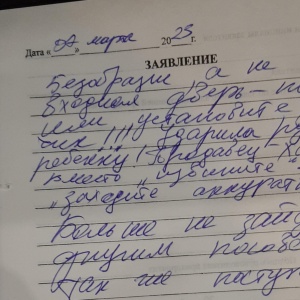 Дата «27» марта 2023 г.
ЗАЯВЛЕНИЕ
Безобразие а не
входная дверь - п
или установите
чик!!! Ударила р
ребёнку! Продавец - х
вместо „извините"
„заходите аккурат
Больше не зай
другим пособ
так не поступ